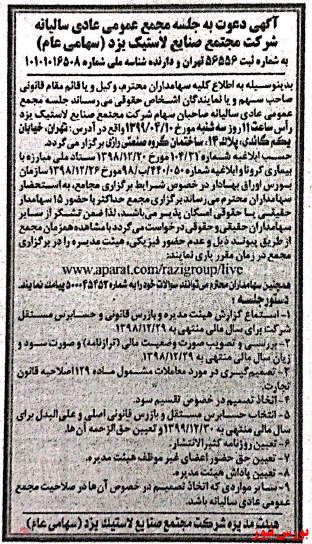 آگهی دعوت به جلسه مجمع عمومی عادی سالیانه
شرکت مجتمع صنایع لاستیک یزد (سهامی عام)
به شماره ثبت ۵۶۵۵۶ تهران و دارنده شناسه ملی شماره ۱۰۱۰۱۰۱۶۵۰۸
بدینوسیله به اطلاع کلیه سهامداران محترم، وکیل و یا قائم مقام قانونی
صاحب سهم و یا نمایندگان اشخاص حقوقی می‌رساند جلسه مجمع
عمومی عادی سالیانه صاحبان سهام شرکت مجتمع صنایع لاستیک یزد
رأس ساعت ۱۱ روز سه شنبه مورخ ۱۳۹۹/۰۴/۱۰ واقع در آدرس: تهران، خیابان
یکم گاندی، پلاک ۱۴، ساختمان گروه صنعتی رازی برگزار می‌گردد.
حسب ابلاغیه شماره ۱۰۴/۳۱ مورخ ۱۳۹۸/۱۲/۲۰ ستاد ملی مبارزه با
بیماری کرونا و ابلاغیه ۴۴۰/۰۵۰/ب۹۸ مورخ ۱۳۹۸/۱۲/۲۶ سازمان
بورس اوراق بهادار در خصوص شرایط برگزاری مجامع، به استحضار
سهامداران محترم می‌رساند برگزاری مجمع حداکثر با حضور ۱۵ سهامدار
حقیقی یا حقوقی امکان پذیر می‌باشد. لذا ضمن تشکر از سایر
سهامداران حقیقی و حقوقی درخواست می‌گردد با مشاهده همزمان مجمع
از طریق پیوند ذیل و عدم حضور فیزیکی، هیئت مدیره را در برگزاری
مجمع در زمان مقرر یاری نمایند:
www.aparat.com/razigroup/live
همچنین سهامداران محترم می‌توانند سوالات خود را به شماره ۵۰۰۰۴۵۴۵۲ پیامک نمایند.
دستور جلسه:
۱- استماع گزارش هیئت مدیره و بازرس قانونی و حسابرس مستقل
شرکت برای سال مالی منتهی به ۱۳۹۸/۱۲/۲۹
۲- بررسی و تصویب صورت وضعیت مالی (ترازنامه) و صورت سود و
زیان سال مالی منتهی به ۱۳۹۸/۱۲/۲۹.
۳- تصمیم‌گیری در مورد معاملات مشمول ماده ۱۲۹ اصلاحیه قانون
تجارت.
۴- اتخاذ تصمیم در خصوص تقسیم سود.
۵- انتخاب حسابرس مستقل و بازرس قانونی اصلی و علی البدل برای
سال مالی منتهی به ۱۳۹۹/۱۲/۳۰ و تعیین حق الزحمه آن ها.
۶- تعیین روزنامه کثیرالانتشار.
۷- تعیین حق حضور اعضای غیر موظف هیئت مدیره.
۸- تعیین پاداش هیئت مدیره.
۹- سایر مواردی که اتخاذ تصمیم در خصوص آن‌ها در صلاحیت مجمع
عمومی عادی سالیانه باشد.
هیئت مدیره شرکت مجتمع صنایع لاستیک یزد (سهامی عام)
بورس نیوز